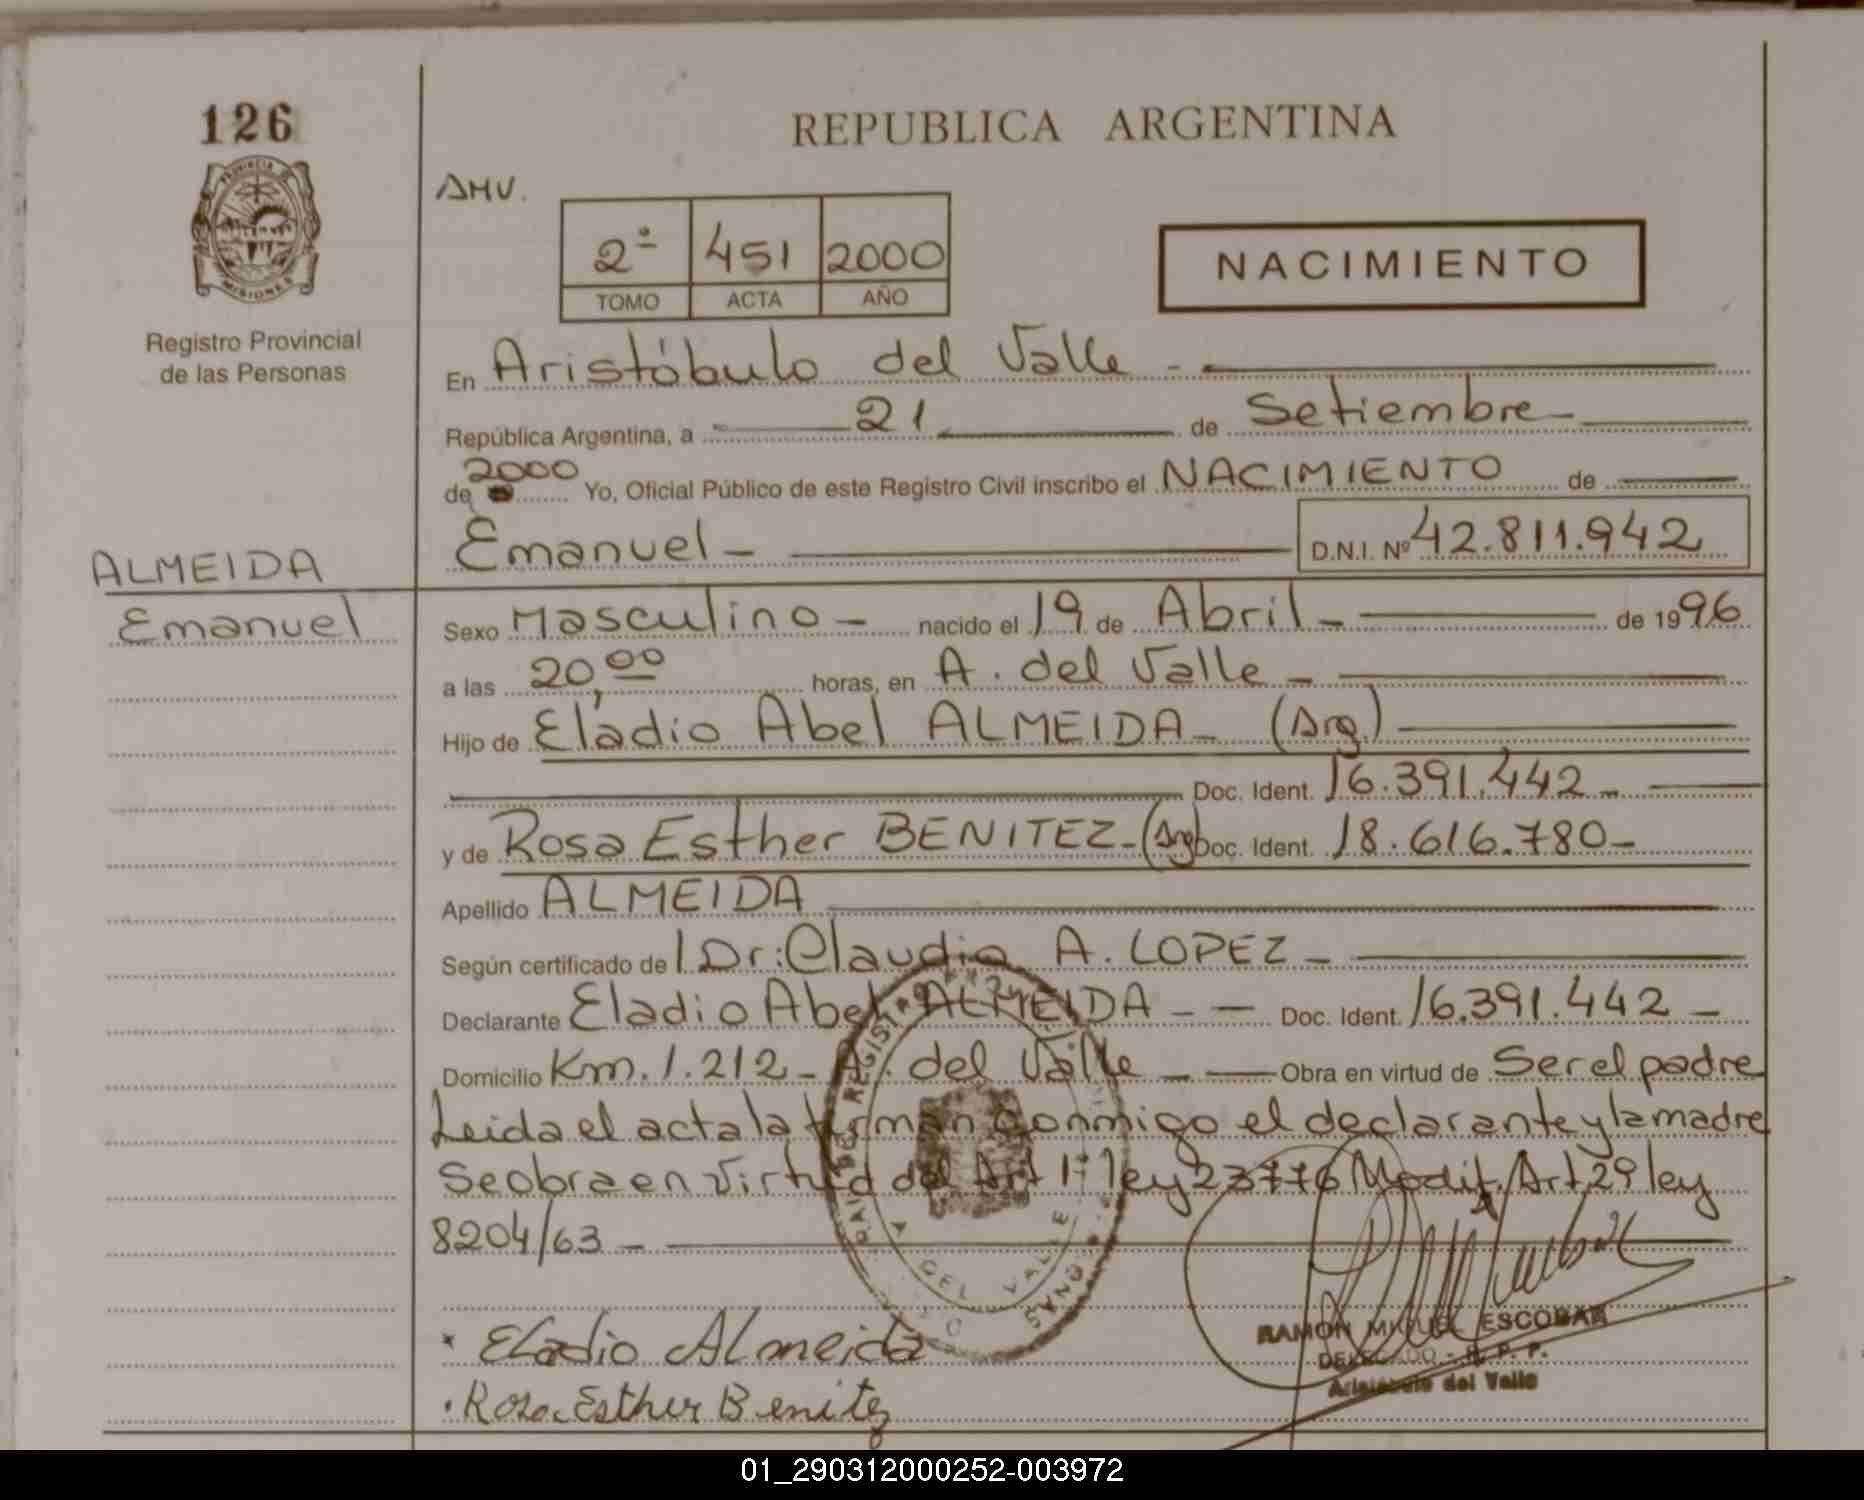 126
PROVINCIA DE
MISIONES
Registro Provincial
de las Personas
REPUBLICA ARGENTINA
AMV.
2º 451 2000
TOMO ACTA AÑO
NACIMIENTO
En Aristóbulo del Valle -
República Argentina, a 21 de Setiembre
de 2000 Yo, Oficial Público de este Registro Civil inscribo el NACIMIENTO de
Emanuel - D.N.I. Nº 42.811.942
ALMEIDA
Emanuel
Sexo Masculino - nacido el 19 de Abril - de 1996
a las 20,00 horas, en A. del Valle -
Hijo de Eladio Abel ALMEIDA - (Arg.)
Doc. Ident. 16.391.442 -
y de Rosa Esther BENITEZ - (Arg) Doc. Ident. 18.616.780 -
Apellido ALMEIDA
Según certificado de l Dr: Claudio A. LOPEZ -
Declarante Eladio Abel ALMEIDA - - Doc. Ident. 16.391.442 -
Domicilio Km. 1.212 - A. del Valle - Obra en virtud de Ser el padre
Leida el acta la firman conmigo el declarante y la madre
Se obra en virtud del Art 1º ley 23776 Modif. Art 29 ley
8204/63 -
A DEL VALLE
Eladio Almeida
Rosa Esther Benitez
RAMON MIGUEL ESCOBAR
DELEGADO - R. P. P.
Aristóbulo del Valle
01_290312000252-003972